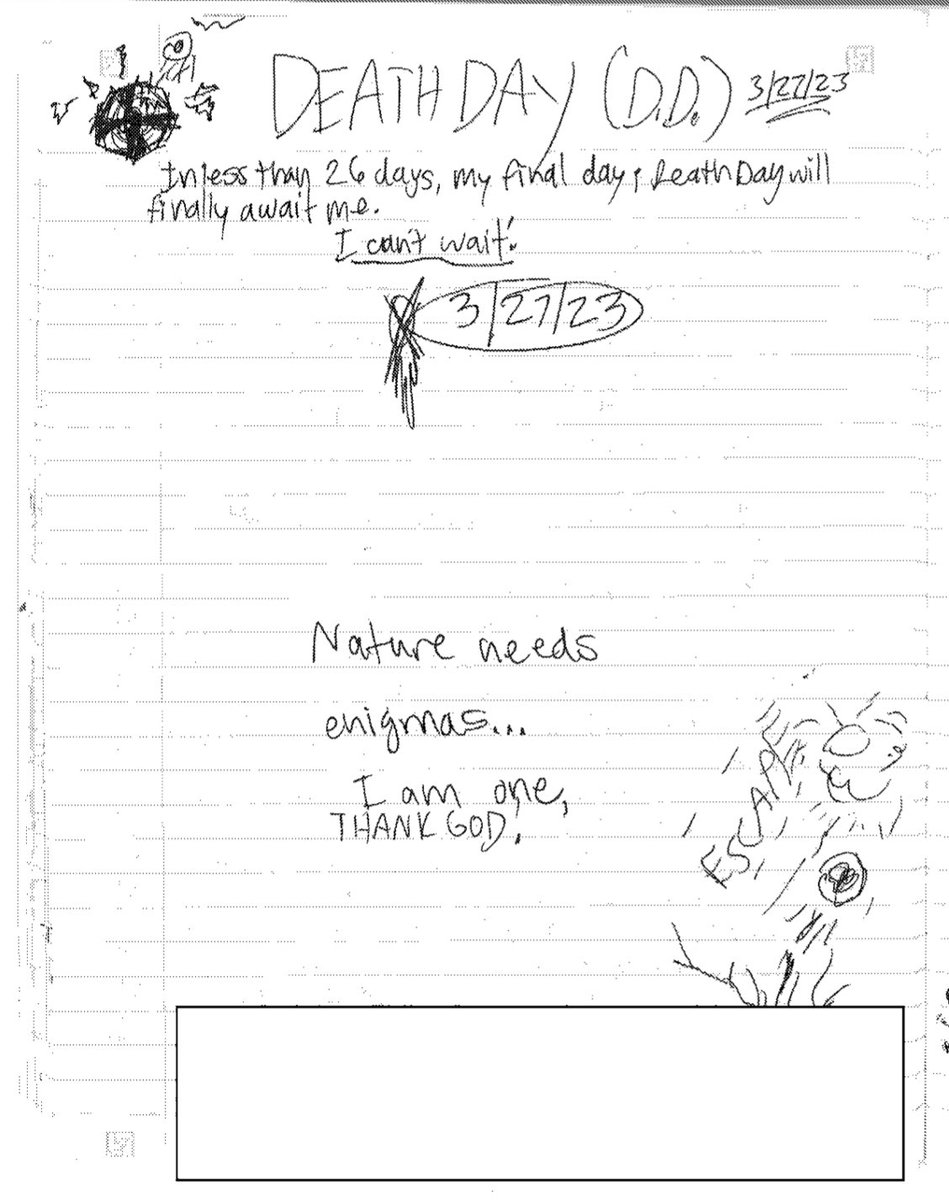 DEATH DAY (D.D.) 3/27/23
In less than 26 days, my final day; Death Day will
finally await me.
I can't wait!
3/27/23
Nature needs
enigmas...
I am one,
THANK GOD!
ESCAPE